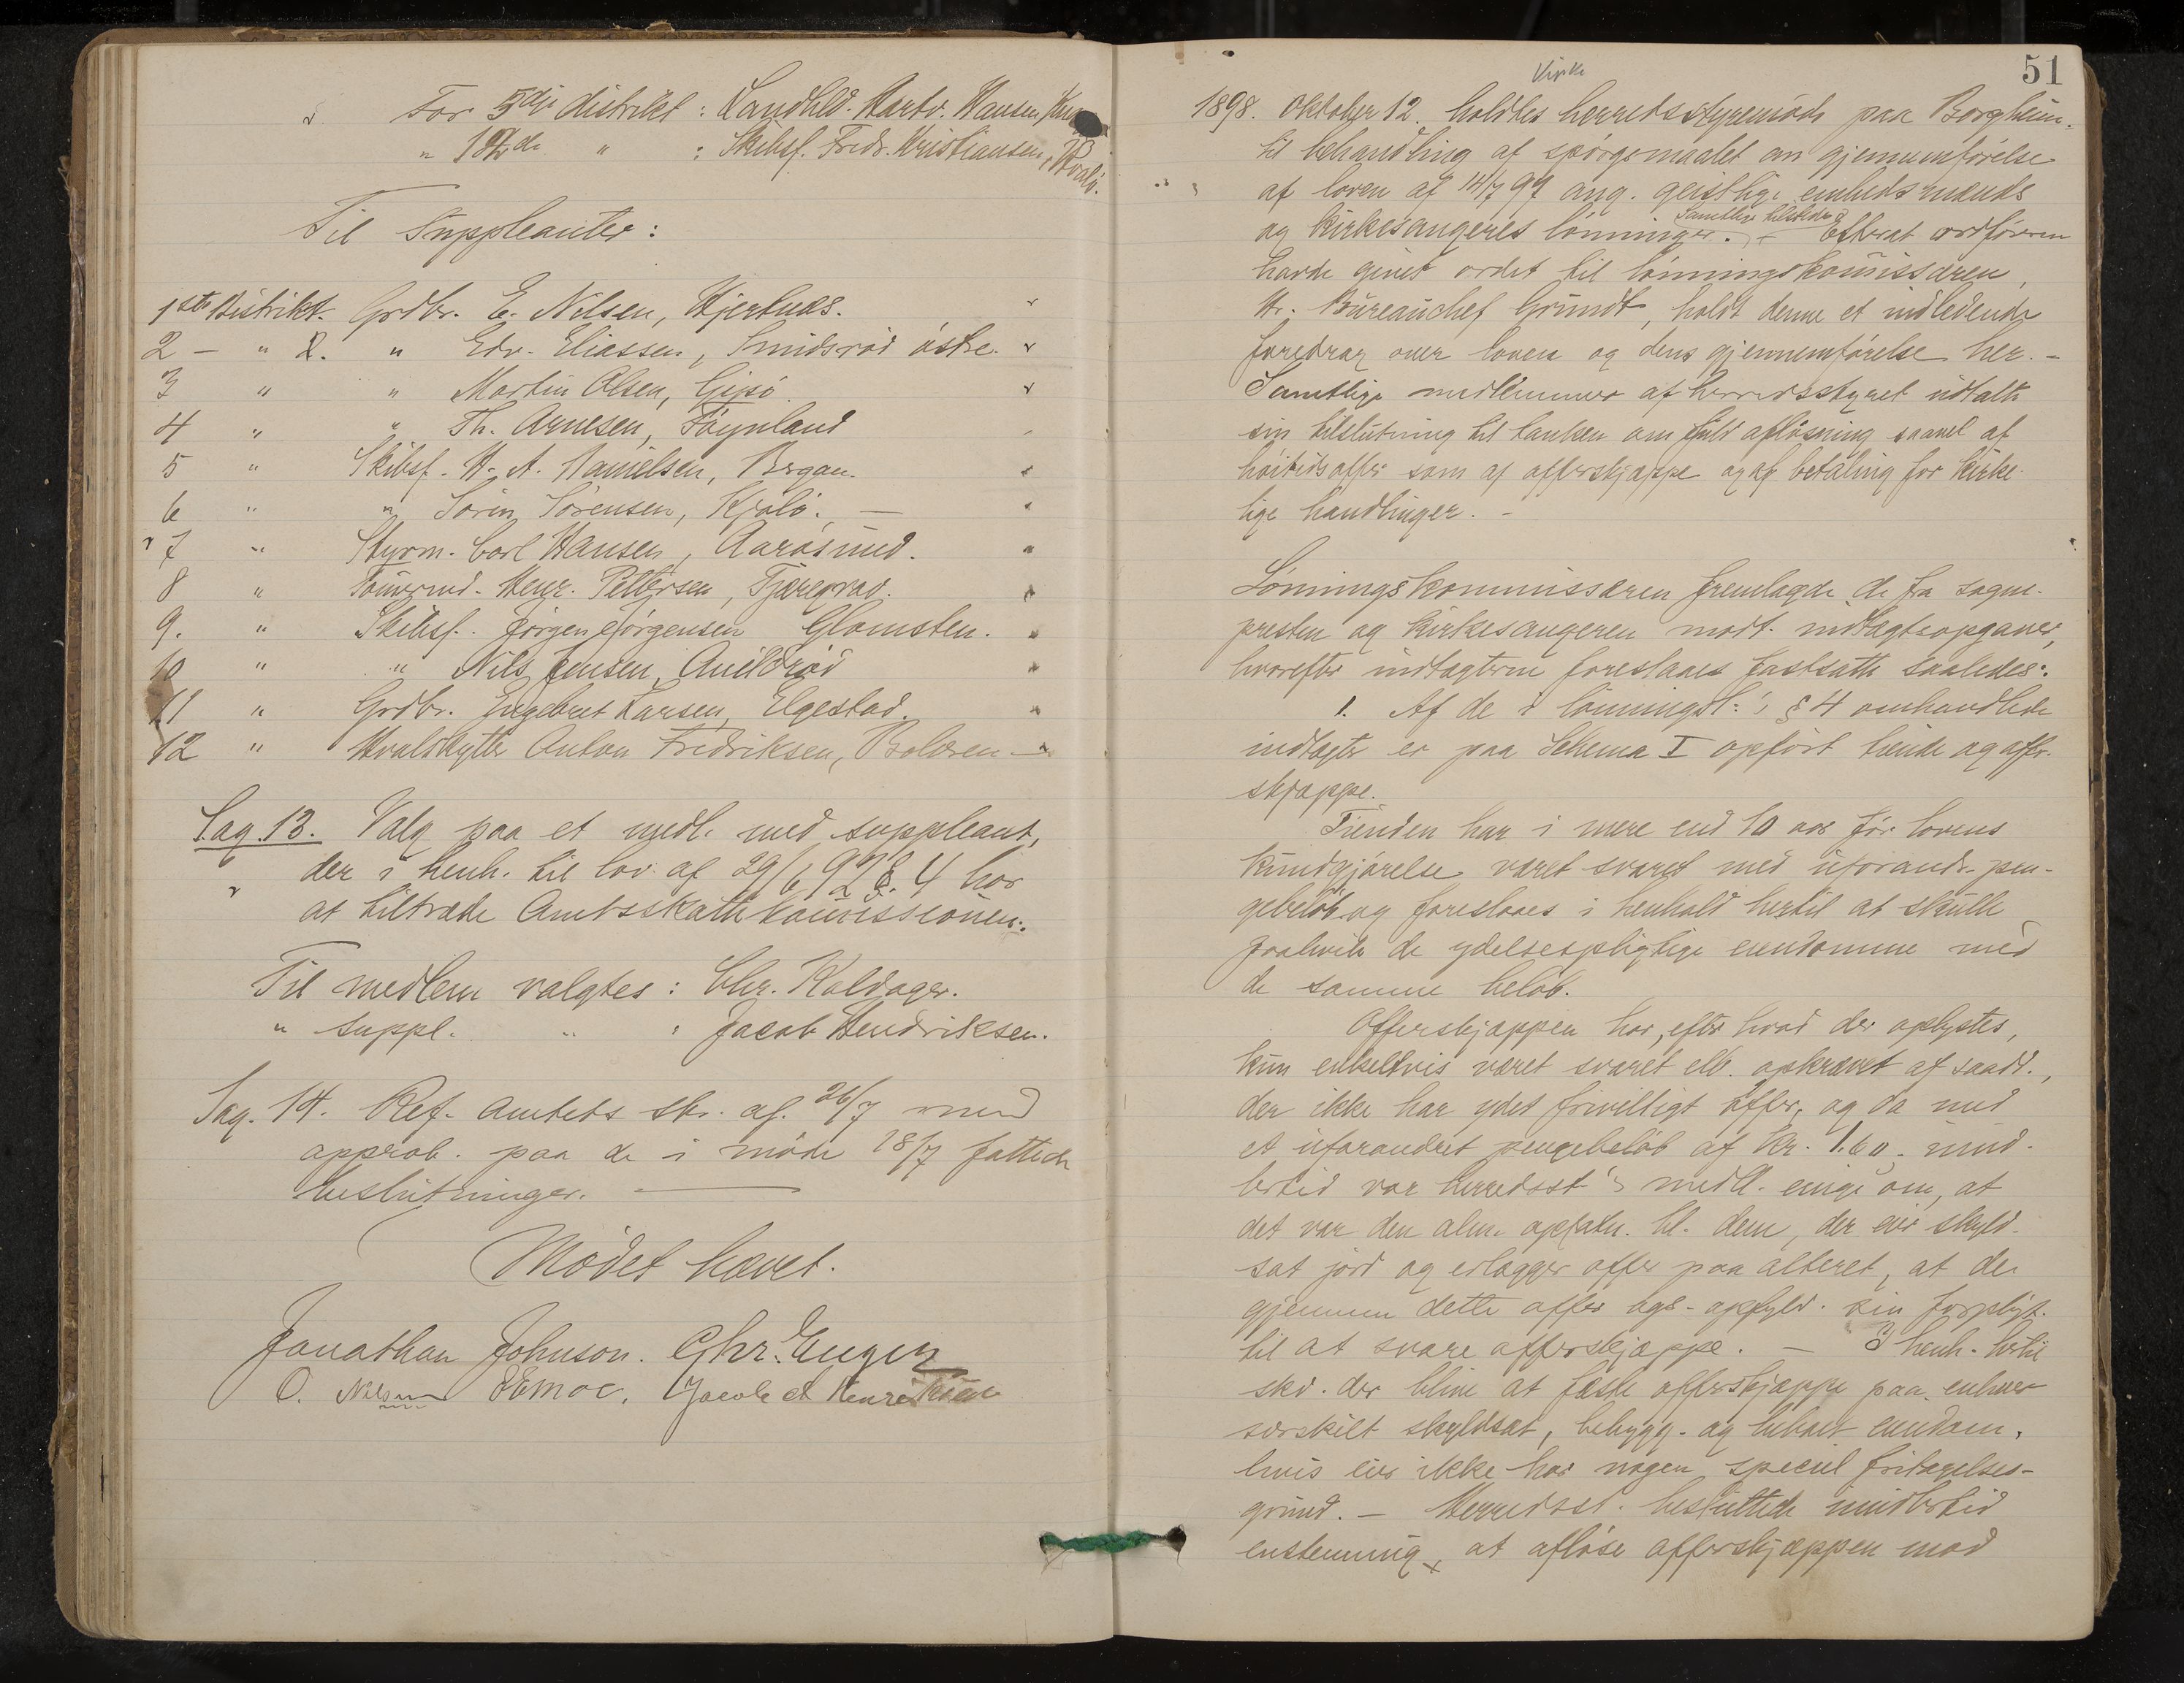 For 5dje distrikt: Landhld. Hartv. Hansen,
" 12de " : Skibsf. Fredr. Kristiansen,
Til Suppleanter:
1ste Distrikt. Grdbr. E. Nilsen, Hjertnæs.
2 - " " Edv. Eliassen, Smidsrød østre.
3 " " Martin Olsen, Gipø.
4 " " Th. Arnesen, Føynland
5 " Skibsf. H. A. Danielsen, Bergan.
6 " " Sørin Sørensen, Kjøle. —
7 " Styrm. Carl Hansen, Aarøsund.
8 " Tømrmd. Henr. Pettersen, Fjæregrad.
9. " Skibsf. Jørgen Jørgensen Glomsten.
10 " " Nils Jensen,
11 " Grdbr. Engebret Larsen, Elgestad.
12 " Hvalskytter Anton Fredriksen, Bolæren —
Sag 13. Valg paa et medl. med suppleant,
der i henh. til lov af 29/6 92 § 4 har
at tiltræde Amtsskattekomissionen.
Til medlem valgtes: Chr. Kaldager.
" suppl. " : Jacob Hendriksen.
Sag. 14. Ref. Amtets skr. af 26/7 med
approb. paa de i møde 18/7 fattede
beslutninger. —
Mødet hævet.
Jonathan Johnson. Chr. Enger
O. Nilsen Jacob A Henriksen
51
Kirke
1898. Oktober 12. holdtes herredsstyremøde paa Borgheim.
til behandling af spørgsmaalet om gjennemførelse
af loven af 14/7 97 ang. geistlige embedsmænds
Samtlige tilstede
og kirkesangeres lønninger. - Efterat ordføreren
havde givet ordet til lønningskomissæren,
Hr. Bureauchef Grundt, holdt denne et indledende
foredrag over loven og dens gjennemførelse her. -
Samtlige medlemmer af herredsstyret udtalte
sin tilslutning til tanken om fuld afløsning saavel af
høitidsoffer som af offerskjæppe og af betaling for kirke-
lige handlinger. -
Lønningskommissæren fremlagde de fra sogne-
presten og kirkesangeren modt. indtægtsopgaver,
hvorefter indtægterne foreslaaes fastsatte saaledes:
1. Af de i lønningsl:'s § 4 omhandlede
indtægter er paa Schema I opført tiende og offer-
skjæppe.
Tienden har i mere end 10 aar før lovens
kundgjørelse været svaret med uforandr. pen-
gebeløb og foreslaaes i henhold hertil at skulle
paahvile de ydelsespligtige eiendomme med
de samme beløb.
Offerskjæppen har, efter hvad der oplystes,
kun enkeltvis været svaret ell. opkrævet af saad.,
der ikke har ydet frivilligt offer, og da med
et uforandret pengebeløb af kr. 1.60. imid-
lertid var herredsst's medl. enige om, at
det var den alm. opfatn. bl. dem, der eier skyld-
sat jord og erlægger offer paa alteret, at de
gjennem dette offer ogs. opfyld. sin forpligt.
til at svare offerskjæppe. — I henh. hertil
skd. der blive at fæste offerskjæppe paa enhver
særskilt skyldsat, bebygg. og beboet eiendom,
hvis eier ikke har nogen speciel fritagelses-
grund. — Herredsst. besluttede imidlertid
enstemmig, at afløse offerskjæppen mod